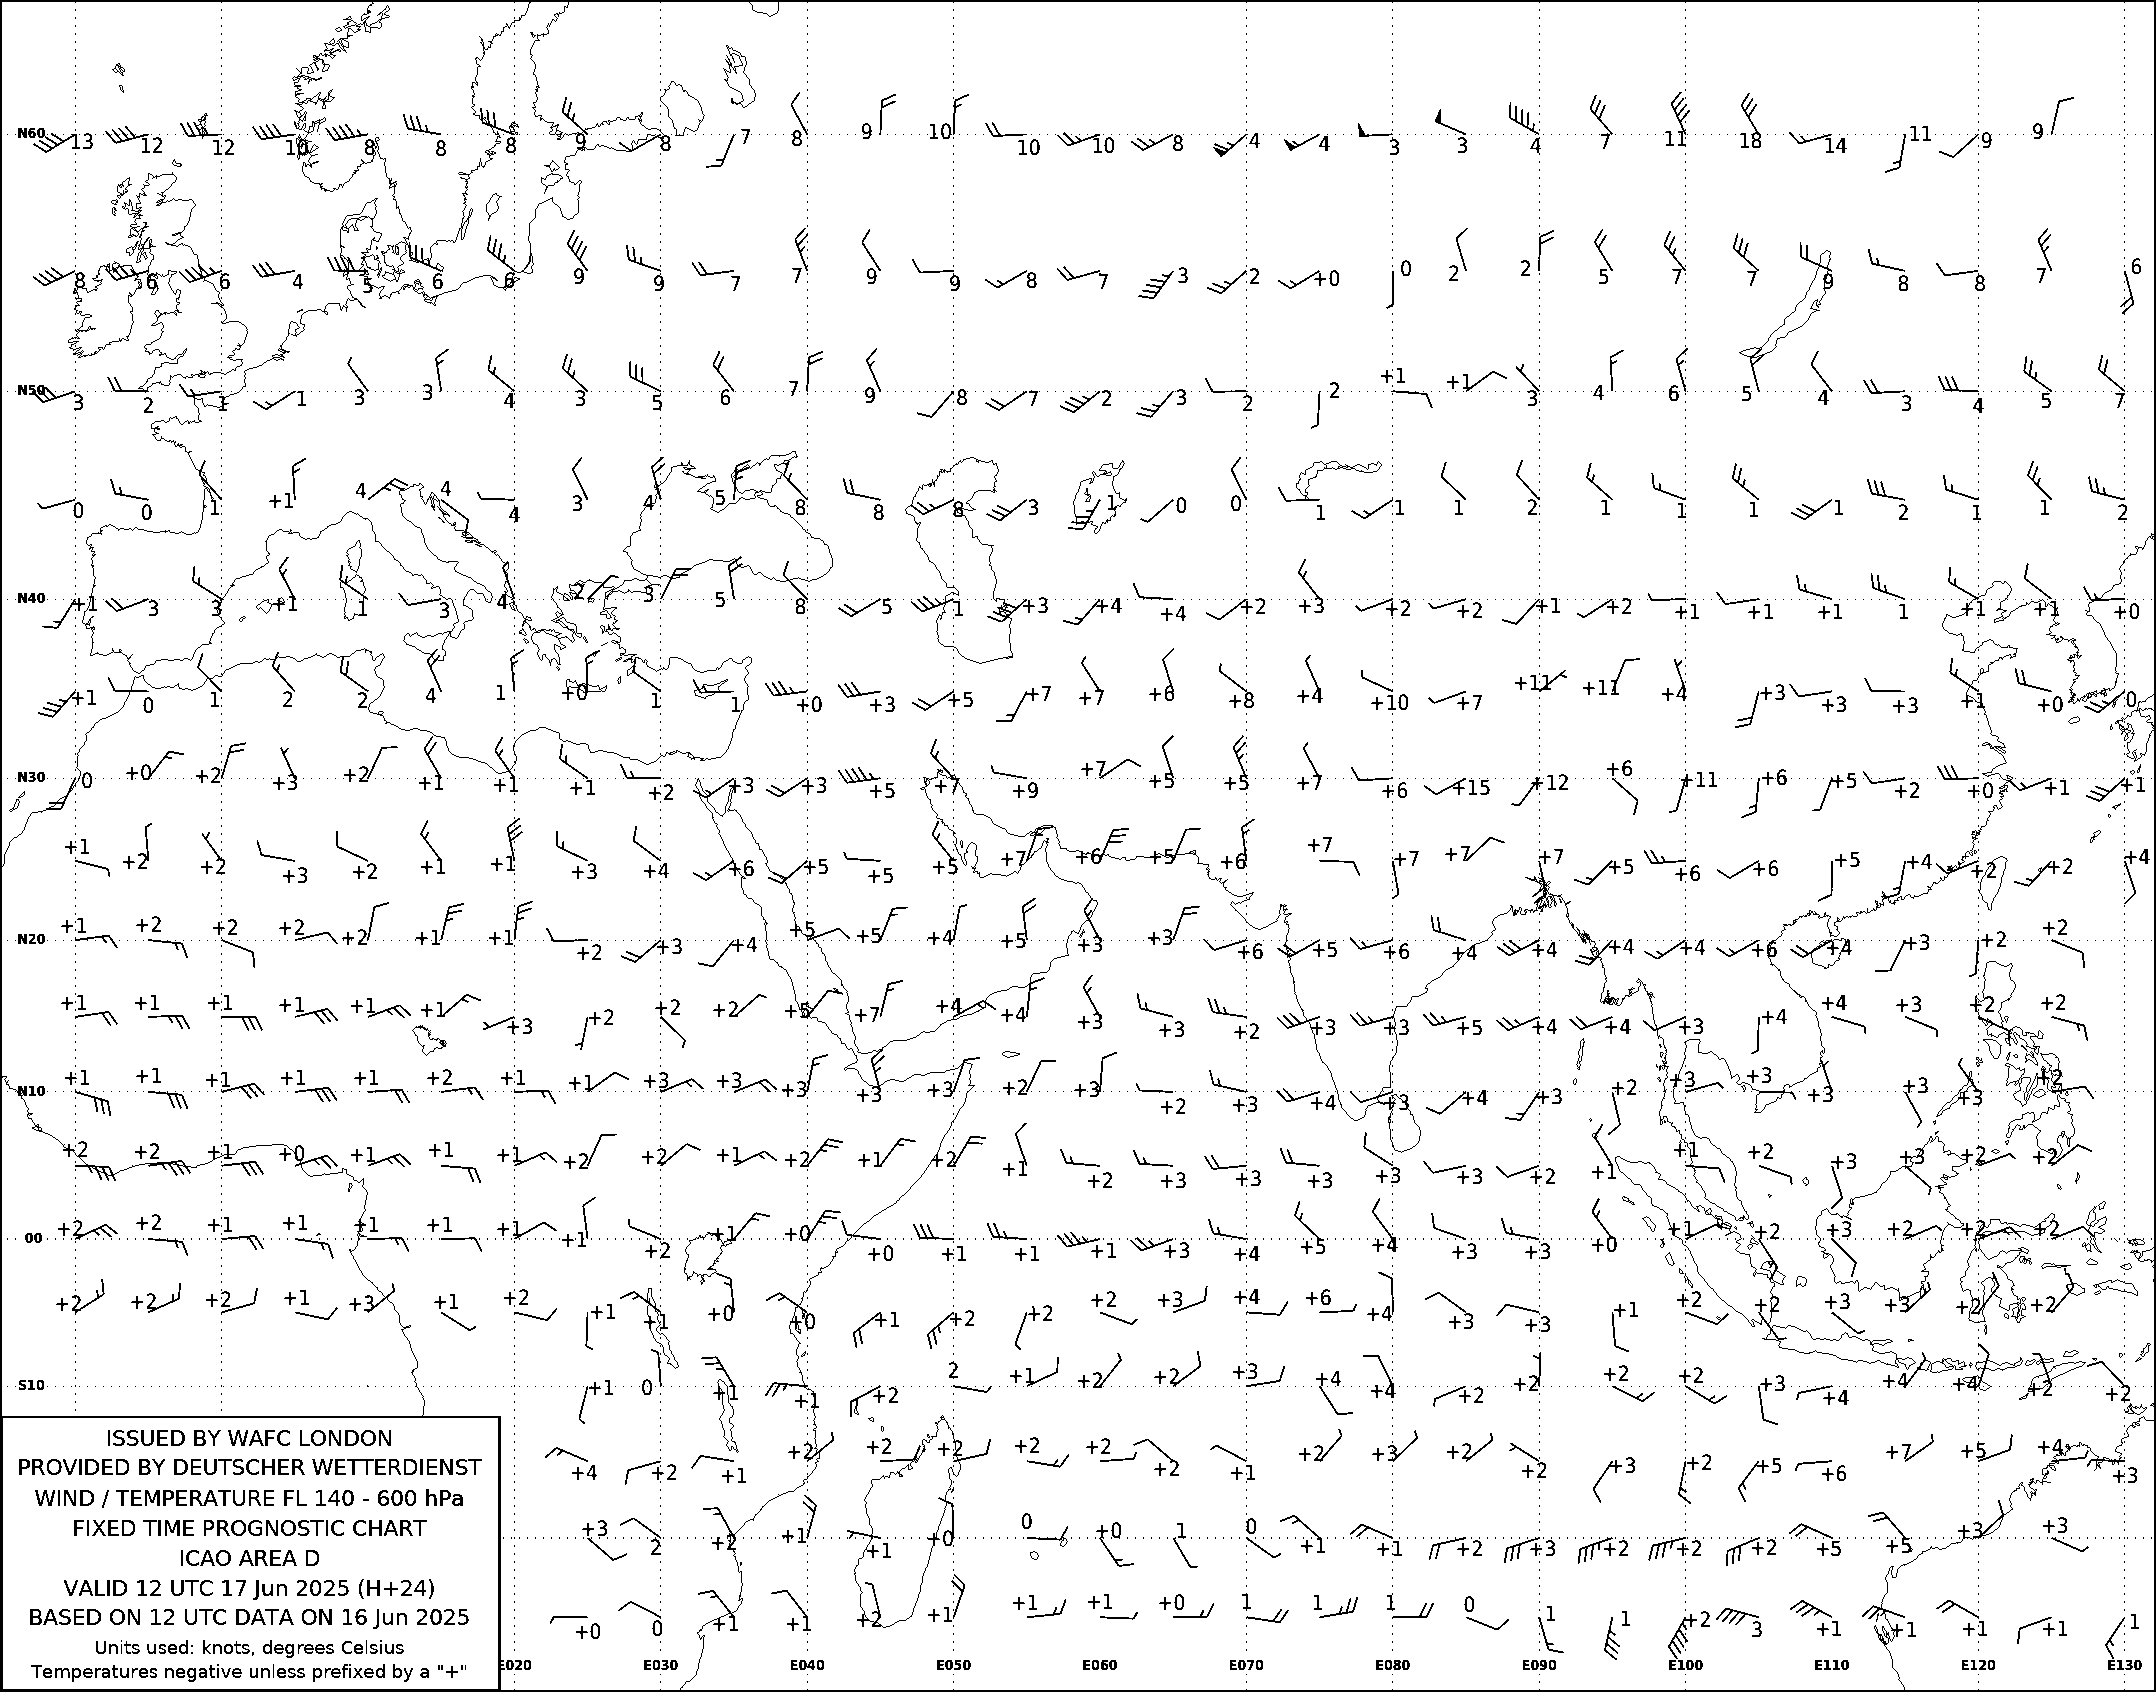 N60 13 12 12 10 8 8 8 9 8 7 8 9 10 10 10 8 4 4 3 3 4 7 11 18 14 11 9 9
8 6 6 4 5 6 6 9 9 7 7 9 9 8 7 3 2 +0 0 2 2 5 7 7 9 8 8 7 6
N50 3 2 1 1 3 3 4 3 5 6 7 9 8 7 2 3 2 2 +1 +1 3 4 6 5 4 3 4 5 7
0 0 1 +1 4 4 4 3 4 5 8 8 8 3 1 0 0 1 1 1 2 1 1 1 1 2 1 1 2
N40 +1 3 3 +1 1 3 4 2 3 5 8 5 1 +3 +4 +4 +2 +3 +2 +2 +1 +2 +1 +1 +1 1 +1 +1 +0
+1 0 1 2 2 4 1 +0 1 1 +0 +3 +5 +7 +7 +6 +8 +4 +10 +7 +11 +11 +4 +3 +3 +3 +1 +0 0
N30 0 +0 +2 +3 +2 +1 +1 +1 +2 +3 +3 +5 +7 +9 +7 +5 +5 +7 +6 +15 +12 +6 +11 +6 +5 +2 +0 +1 +1
+1 +2 +2 +3 +2 +1 +1 +3 +4 +6 +5 +5 +5 +7 +6 +5 +6 +7 +7 +7 +7 +5 +6 +6 +5 +4 +2 +2 +4
N20 +1 +2 +2 +2 +2 +1 +1 +2 +3 +4 +5 +5 +4 +5 +3 +3 +6 +5 +6 +4 +4 +4 +4 +6 +4 +3 +2 +2
+1 +1 +1 +1 +1 +1 +3 +2 +2 +2 +5 +7 +4 +4 +3 +3 +2 +3 +3 +5 +4 +4 +3 +4 +4 +3 +2 +2
N10 +1 +1 +1 +1 +1 +2 +1 +1 +3 +3 +3 +3 +3 +2 +3 +2 +3 +4 +3 +4 +3 +2 +3 +3 +3 +3 +3 +2
+2 +2 +1 +0 +1 +1 +1 +2 +2 +1 +2 +1 +2 +1 +2 +3 +3 +3 +3 +3 +2 +1 +1 +2 +3 +3 +2 +2
00 +2 +2 +1 +1 +1 +1 +1 +1 +2 +1 +0 +0 +1 +1 +1 +3 +4 +5 +4 +3 +3 +0 +1 +2 +3 +2 +2 +2
+2 +2 +2 +1 +3 +1 +2 +1 +1 +0 +0 +1 +2 +2 +2 +3 +4 +6 +4 +3 +3 +1 +2 +2 +3 +3 +2 +2
S10 +1 0 +1 +1 +2 2 +1 +2 +2 +3 +4 +4 +2 +2 +2 +2 +3 +4 +4 +4 +2 +2
+4 +2 +1 +2 +2 +2 +2 +2 +2 +1 +2 +3 +2 +2 +3 +2 +5 +6 +7 +5 +4 +3
+3 2 +2 +1 +1 +0 0 +0 1 0 +1 +1 +2 +3 +2 +2 +2 +5 +5 +3 +3
+0 0 +1 +1 +2 +1 +1 +1 +0 1 1 1 0 1 1 +2 3 +1 +1 +1 +1 1
E020 E030 E040 E050 E060 E070 E080 E090 E100 E110 E120 E130
ISSUED BY WAFC LONDON
PROVIDED BY DEUTSCHER WETTERDIENST
WIND / TEMPERATURE FL 140 - 600 hPa
FIXED TIME PROGNOSTIC CHART
ICAO AREA D
VALID 12 UTC 17 Jun 2025 (H+24)
BASED ON 12 UTC DATA ON 16 Jun 2025
Units used: knots, degrees Celsius
Temperatures negative unless prefixed by a "+"